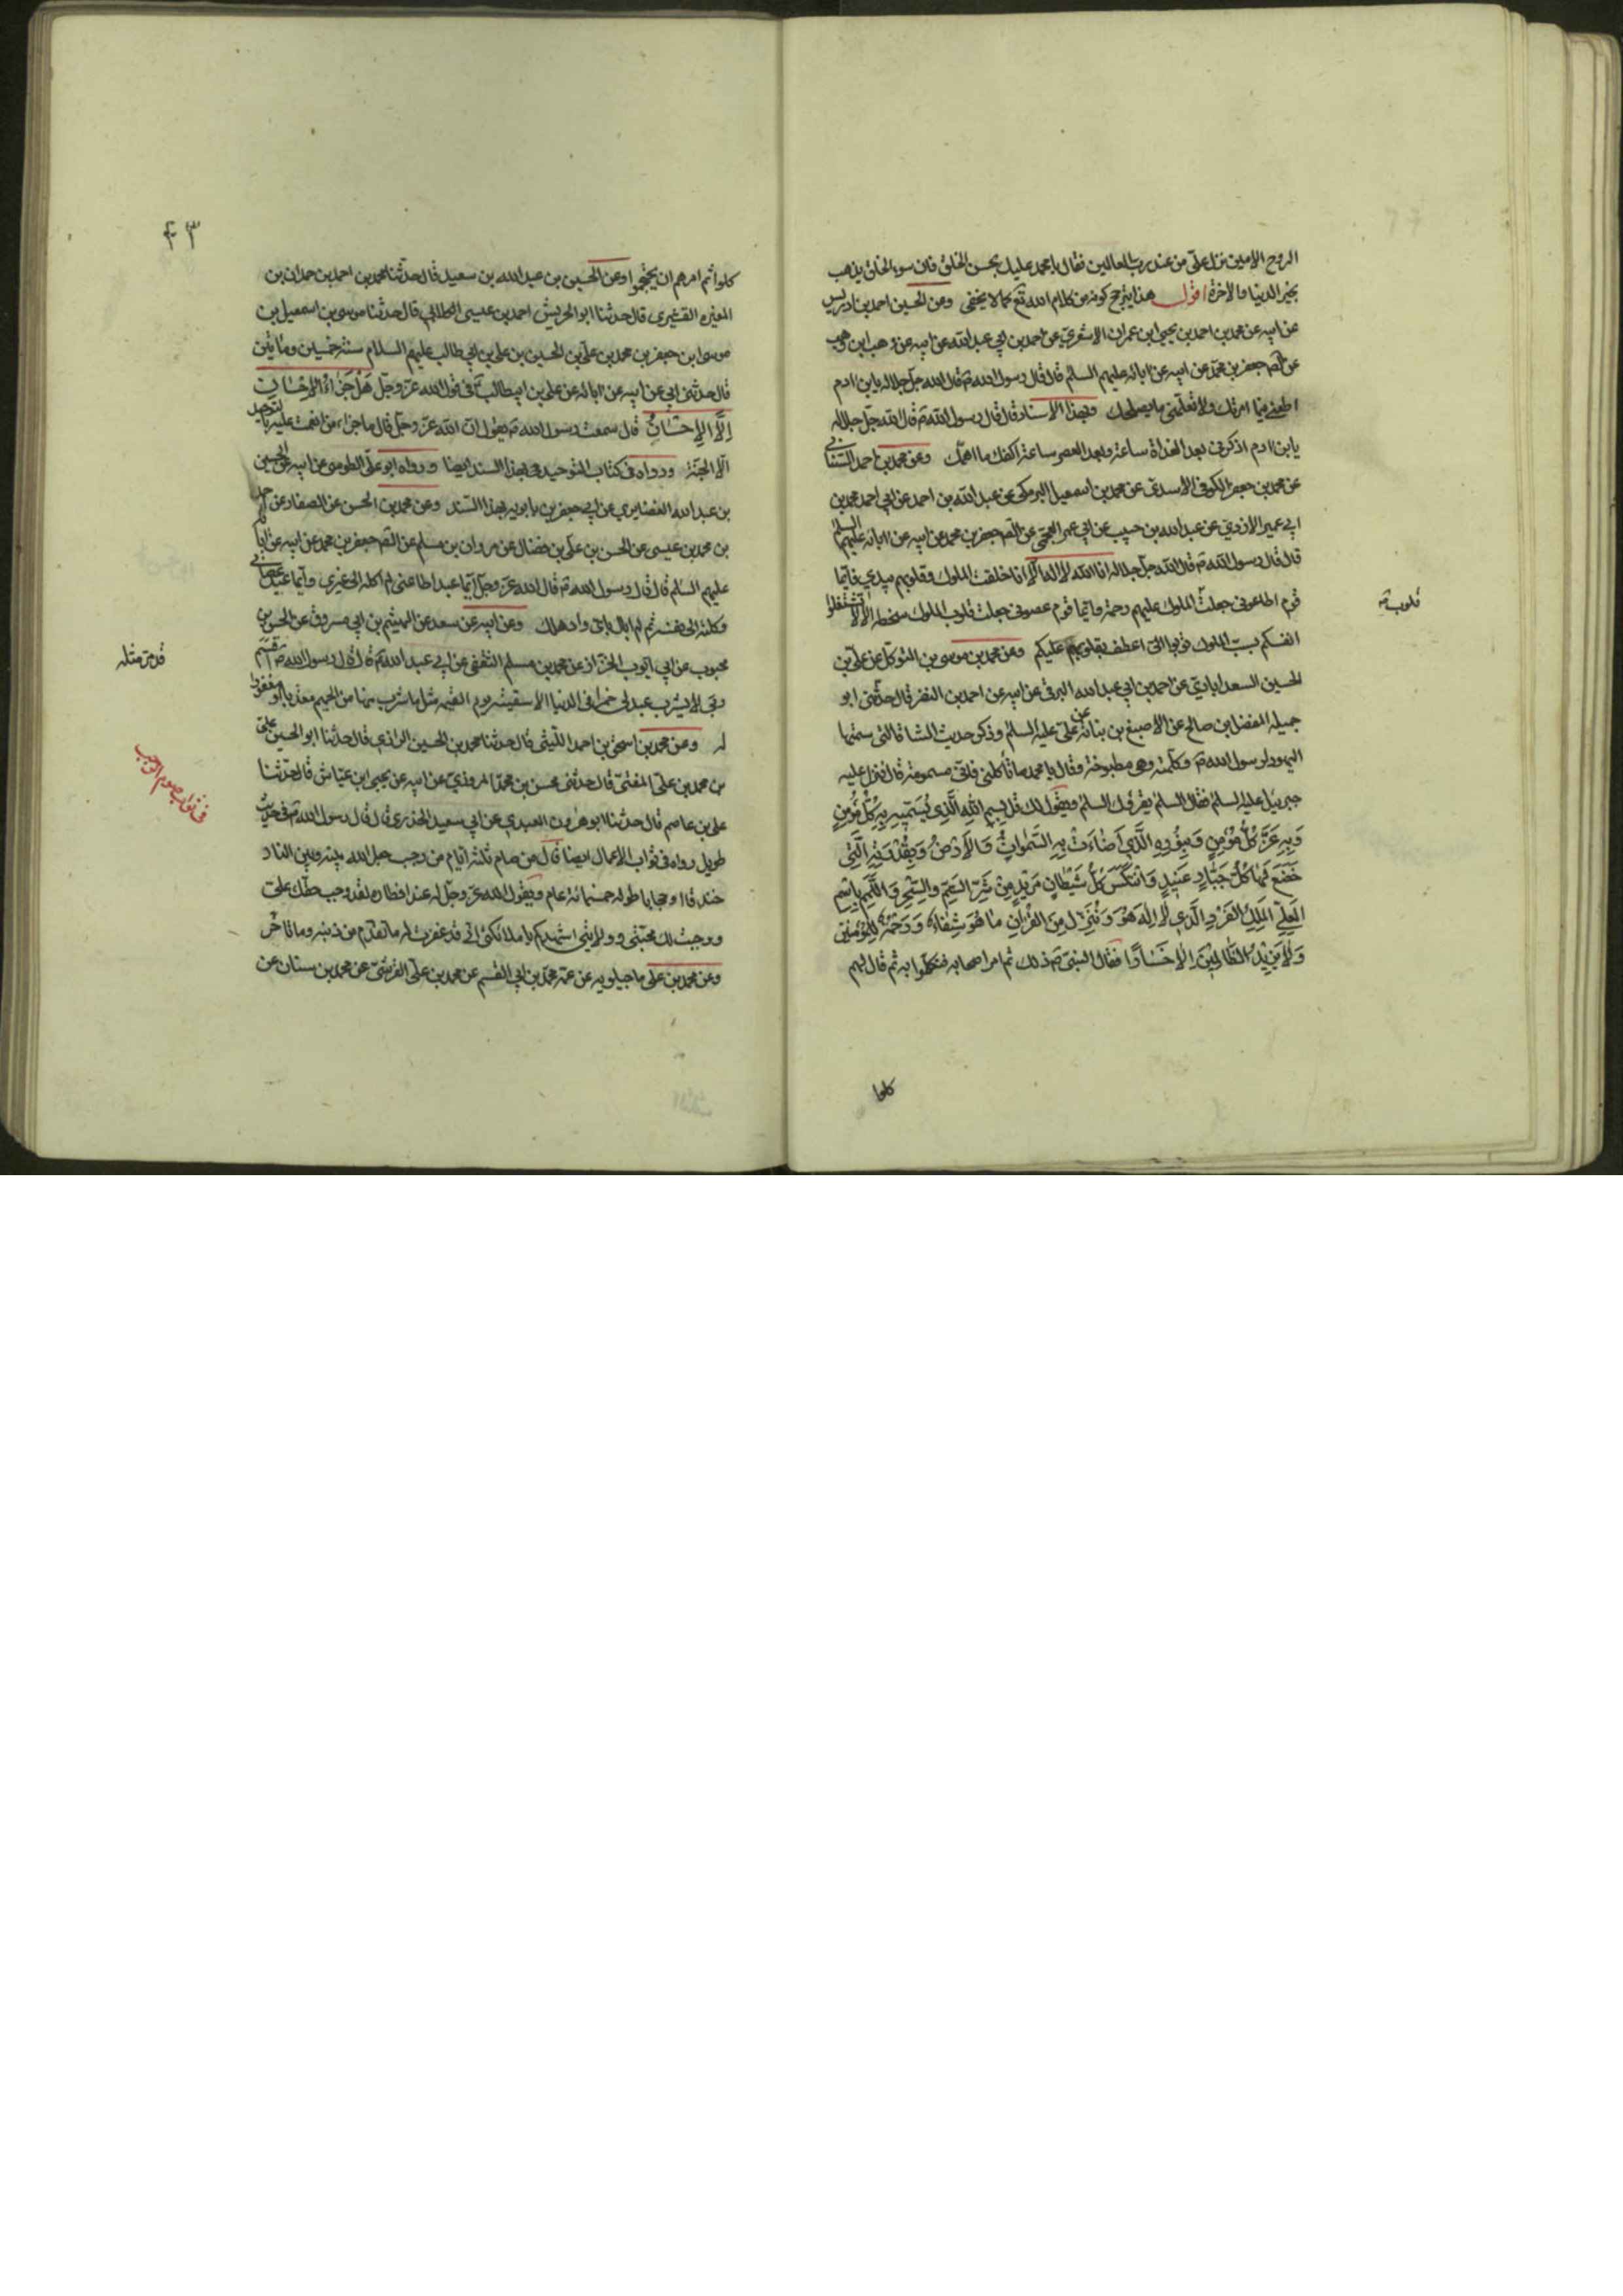 الروح الامين نزل علىّ من عند رب العالمين فقال يا محمد عليك بحسن الخلق فان سوء الخلق يذهب
بخير الدنيا والاخرة اقول هذا يترجح كونه من كلام الله تع كما لا يخفى وعن الحسين احمد بن ادريس
عن ابيه عن محمد بن احمد بن يحيى ابن عمران الاشعري عن احمد بن ابي عبد الله عن ابيه عن وهب ابن وهب
عن الصـ جعفر بن محمد عن ابيه عن ابائه عليهم السلم قال قال رسول الله ص قال الله جل جلاله يا بن ادم
اطعني فيما امرتك ولا تعلمني ما يصلحك وبهذا الاسناد قال قال رسول الله ص قال الله جل جلاله
يا بن ادم اذكرني بعد الغداة ساعة وبعد العصر ساعة اكفك ما اهمك وعن محمد بن احمد السناني
عن محمد بن جعفر الكوفي الاسدي عن محمد بن اسمعيل البرمكي عن عبد الله بن احمد عن ابي احمد محمد بن
ابي عمير الازدي عن عبد الله بن حبيب عن ابي عمر العجمي عن الصـ جعفر بن محمد عن ابيه عن ابائه عليهم السلم
قال قال رسول الله ص قال الله جل جلاله انا الله لا اله الا انا خلقت الملوك وقلوبهم بيدي فايما
قوم اطاعوني جعلت الملوك عليهم رحمة وايما قوم عصوني جعلت قلوب الملوك سخطة الا لا تشتغلوا
قلوب ص
انفسكم بسب الملوك توبوا الىّ اعطف بقلوبهم عليكم وعن محمد بن موسى بن المتوكل عن علي بن
الحسين السعدابادي عن احمد بن ابي عبد الله البرقي عن ابيه عن احمد بن النضر قال حدثني ابو
جميله المفضل بن صالح عن الاصبغ بن نباته عن علي عليه السلم وذكر حديث الشاة التي سمتها
اليهود لرسول الله ص وكلمته وهي مطبوخة وقال يا محمد لا تأكلني فاني مسمومة قال فنزل عليه
جبرئيل عليه السلم فقال السلم يقرئك السلم ويقول لك قل بِسمِ اللهِ الَّذي يُسَمّيهِ بِهِ كُلُّ مُؤمِنٍ
وَبِهِ عَزَّ كُلُّ مُؤمِنٍ وَبِنُورِهِ الَّذي اَضاءَتْ بِهِ السَّمٰواتُ وَالاَرْضُ وَبِقُدْرَتِهِ الَّتي
خَضَعَ لَها كُلُّ جَبّارٍ عَنيدٍ وَانتَكَسَ كُلُّ شَيْطانٍ مَريدٍ مِنْ شَرِّ السَّمِّ والسِّحرِ وَاللَّمَمِ بِاسمِ
العَلِيِّ المَلِكِ الفَرْدِ الَّذي لا اِلٰهَ هُوَ وَنُنَزِّلُ مِنَ القُرْانِ ما هُوَ شِفاءٌ وَرَحْمَةٌ لِلمُؤمِنينَ
وَلا يَزيدُ الظّالِمينَ اِلا خَسارًا فقال النبي ص ذلك ثم امر اصحابه فتكلموا به ثم قال لهم
كلوا
٤٣
كلوا ثم امرهم ان يحتجموا وعن الحسين بن عبد الله بن سعيد قال حدثنا محمد بن احمد بن حمدان بن
المغيره القشيري قال حدثنا ابو الحريش احمد بن عيسى الكلابي قال حدثنا موسى بن اسمعيل بن
موسى ابن جعفر بن محمد بن علي بن الحسين بن علي بن ابي طالب عليهم السلام سنة خمسين ومائتين
قال حدثني ابي عن ابيه عن ابائه عن علي بن ابيطالب ع في قول الله عز وجل هَلْ جَزاءُ الاِحْسانِ
اِلّا الاِحْسانُ قال سمعت رسول الله ص يقول ان الله عز وجل قال ما جزاء من انعمت عليه بالتوحيد
الا الجنة ورواه في كتاب التوحيد بهذا السند ايضا ورواه ابو علي الطوسي عن ابيه عن الحسين
بن عبد الله الغضايري عن ابي جعفر بن بابويه بهذا السند وعن محمد بن الحسن عن الصفار عن احمد
بن محمد بن عيسى عن الحسن بن علي بن فضال عن مروان بن مسلم عن الصـ جعفر بن محمد عن ابيه عن ابائه
عليهم السلم قال قال رسول الله ص قال الله عز وجل ايما عبد اطاعني لم اكله الى غيري وايما عبد عصاني
وكلته الى نفسه ثم لم ابال باي واد هلك وعن ابيه عن سعد عن الهيثم بن ابي مسروق عن الحسن بن
محبوب عن ابي ايوب الخزاز عن محمد بن مسلم الثقفي عن ابي عبد الله ع قال قال رسول الله ص اقسم
قد مر مثله
ربي لا يشرب عبد لي خمرا في الدنيا الا سقيته يوم القيمه مثل ما شرب منها من الحميم معذبا او مغفورا
له وعن محمد بن اسحق بن احمد الليثي قال حدثنا محمد بن الحسين الرازي قال حدثنا ابو الحسين علي
بن محمد بن علي المفتي قال حدثني محسن بن محمد المروزي عن ابيه عن يحيى ابن عياش قال حدثنا
في ثواب صوم الرجب
علي بن عاصم قال حدثنا ابو هرون العبدي عن ابي سعيد الخدري قال قال رسول الله ص في حديث
طويل رواه في ثواب الاعمال ايضا قال من صام ثلثة ايام من رجب جعل الله بينه وبين النار
خندقا او حجابا طوله خمسمائة عام ويقول الله عز وجل له عند افطاره لقد وجب حقك علي
ووجبت لك محبتي وولايتي اشهدكم يا ملائكتي اني قد غفرت له ما تقدم من ذنبه وما تاخر
وعن محمد بن علي ماجيلويه عن عمه محمد بن ابي القسم عن محمد بن علي القرشي عن محمد بن سنان عن